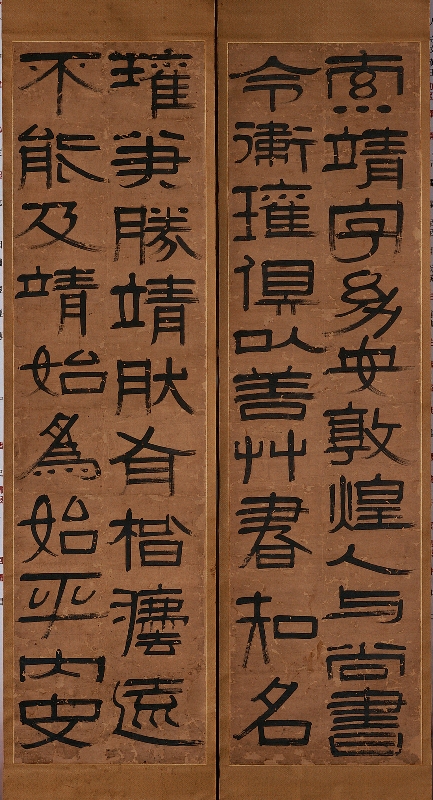 索靖字幼安敦煌人与尚書
令衛瓘俱以善艸書知名
瓘筆勝靖肰有楷灋遠
不能及靖始為始平內史